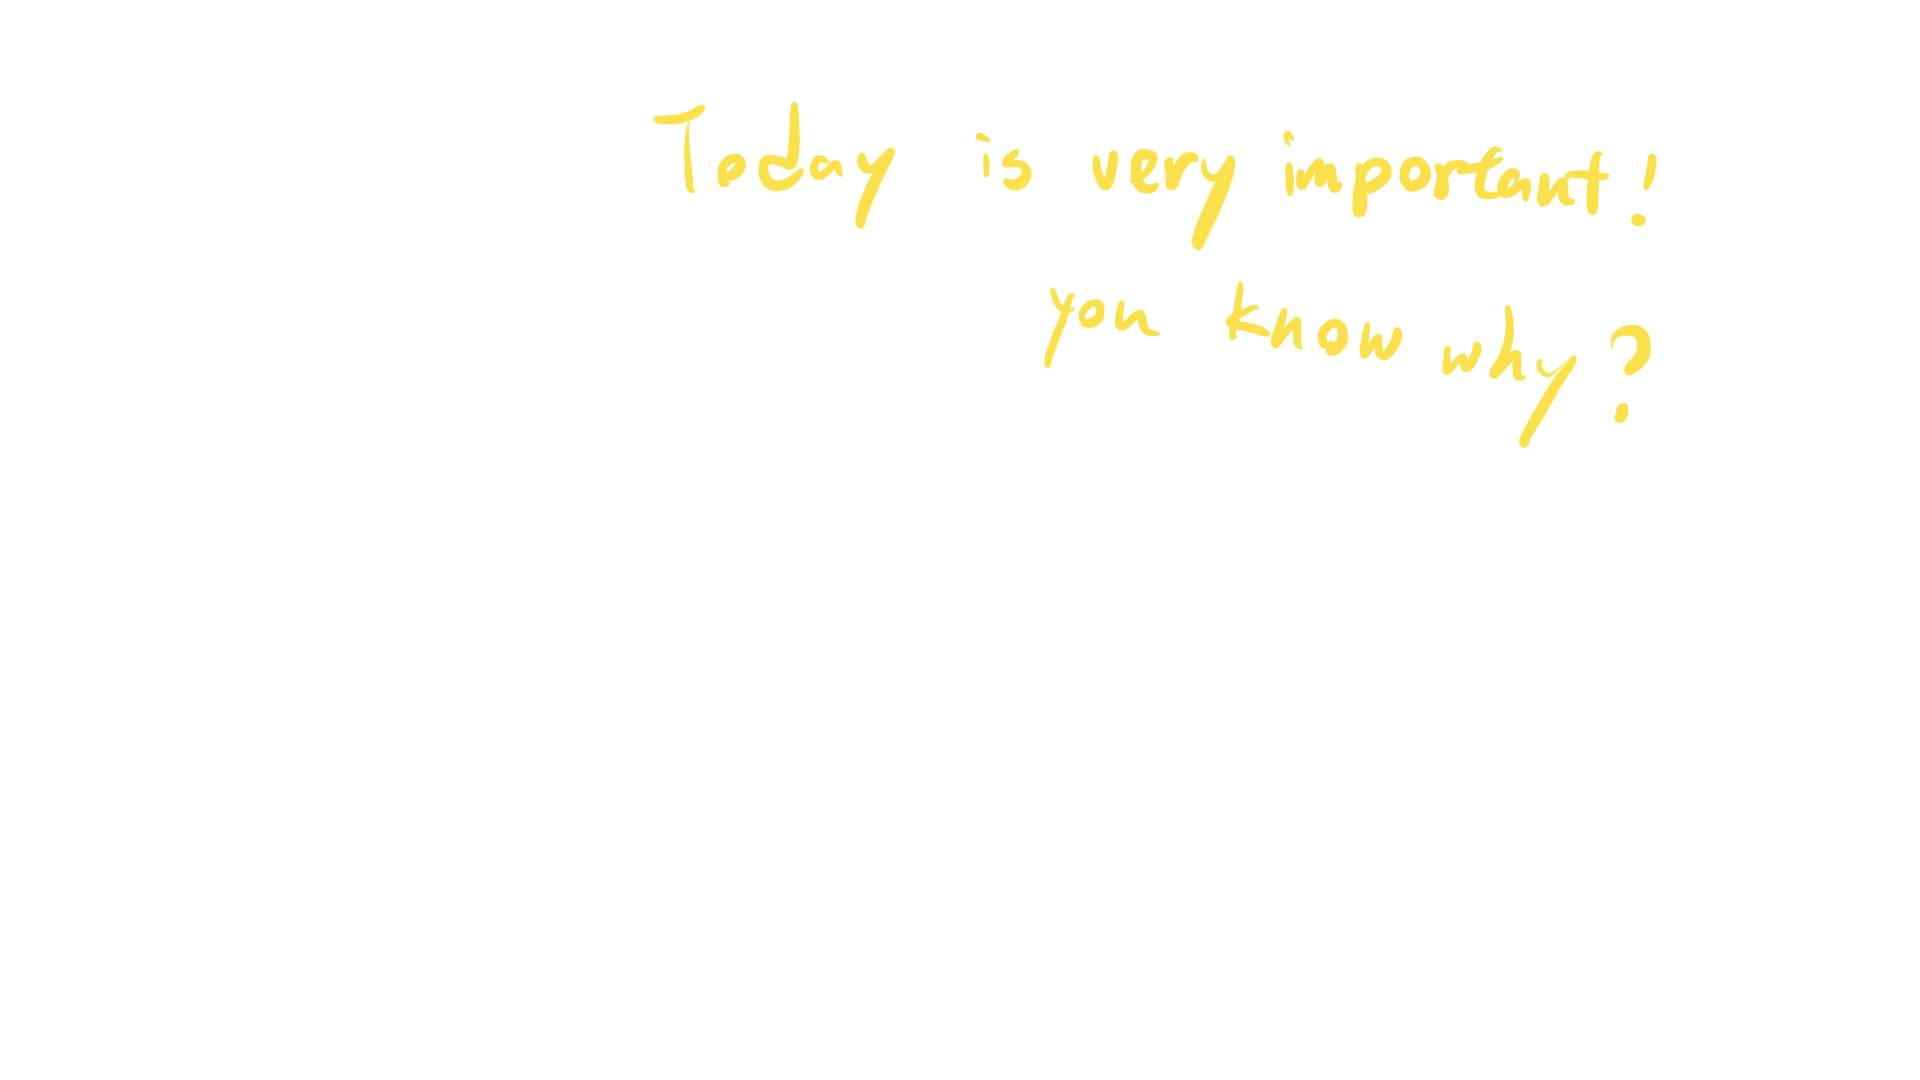 Today is very important!
you know why?